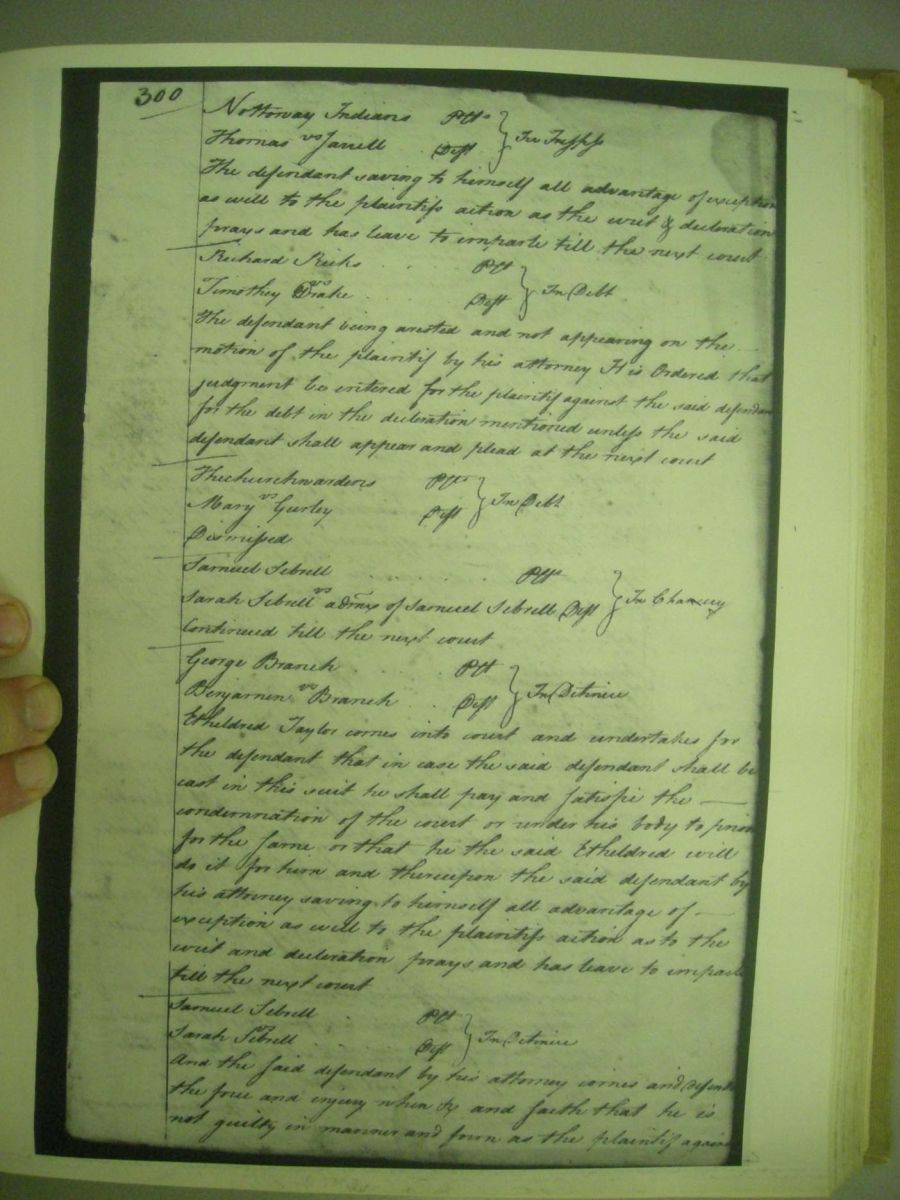 300
Nottoway Indians Plts
vs In Trespass
Thomas Jarrell Deft
The defendant saving to himself all advantage of exception
as well to the plaintifs action as the writ & decleration
prays and has leave to imparle till the next court
Richard Ricks Plt
vs In Debt
Timothey Drake Deft
The defendant being arested and not appearing on the
motion of the plaintif by his attorney It is Ordered that
judgment be entered for the plaintif against the said defendan
for the debt in the decleration mentioned unless the said
defendant shall appear and plead at the next court
Thechurchwardens Plts
vs In Debt
Mary Gurley Deft
Dismissed
Samuel Sebrell Plt
vs In Chancery
Sarah Sebrell admx of Samuel Sebrell Deft
Continued till the next court
George Branch Plt
vs In Detinue
Benjamen Branch Deft
Etheldred Taylor comes into court and undertakes for
the defendant that in case the said defendant shall be
cast in this suit he shall pay and satisfie the
condemnation of the court or render his body to prison
for the same or that he the said Etheldred will
do it for him and thereupon the said defendant by
his attorney saving to himself all advantage of
exception as well to the plaintifs action as to the
writ and decleration prays and has leave to imparle
till the next court
Samuel Sebrell Plt
vs In Detinue
Sarah Sebrell Deft
And the said defendant by his attorney comes and defends
the force and injury when &c and saith that he is
not guilty in manner and form as the plaintif again